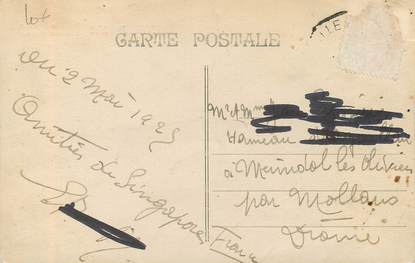 lot
CARTE POSTALE
du 2 Mai 1925
Amitiés de Singapore
Mr & Mme
Hameau
à Mérindol les oliviers
par Mollans
Drome
France